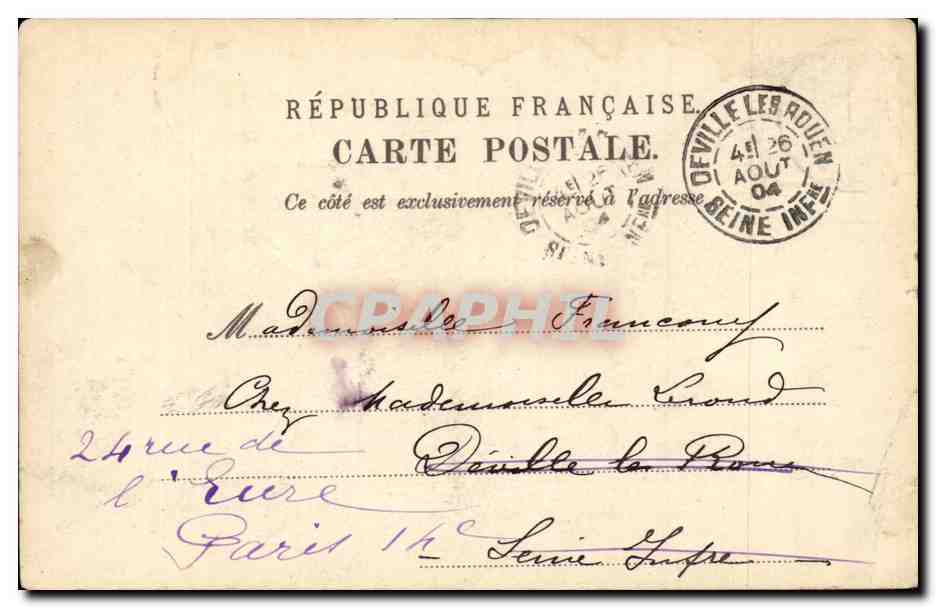 RÉPUBLIQUE FRANÇAISE.
CARTE POSTALE.
Ce côté est exclusivement réservé à l'adresse
DEVILLE LES ROUEN
4E 26
AOUT
04
SEINE INFRE
CPAPHIL
Mademoiselle Francony
Chez Mademoiselle Leroud
Déville les Rouen
Seine Infre
24 rue de
l'Eure
Paris 14e